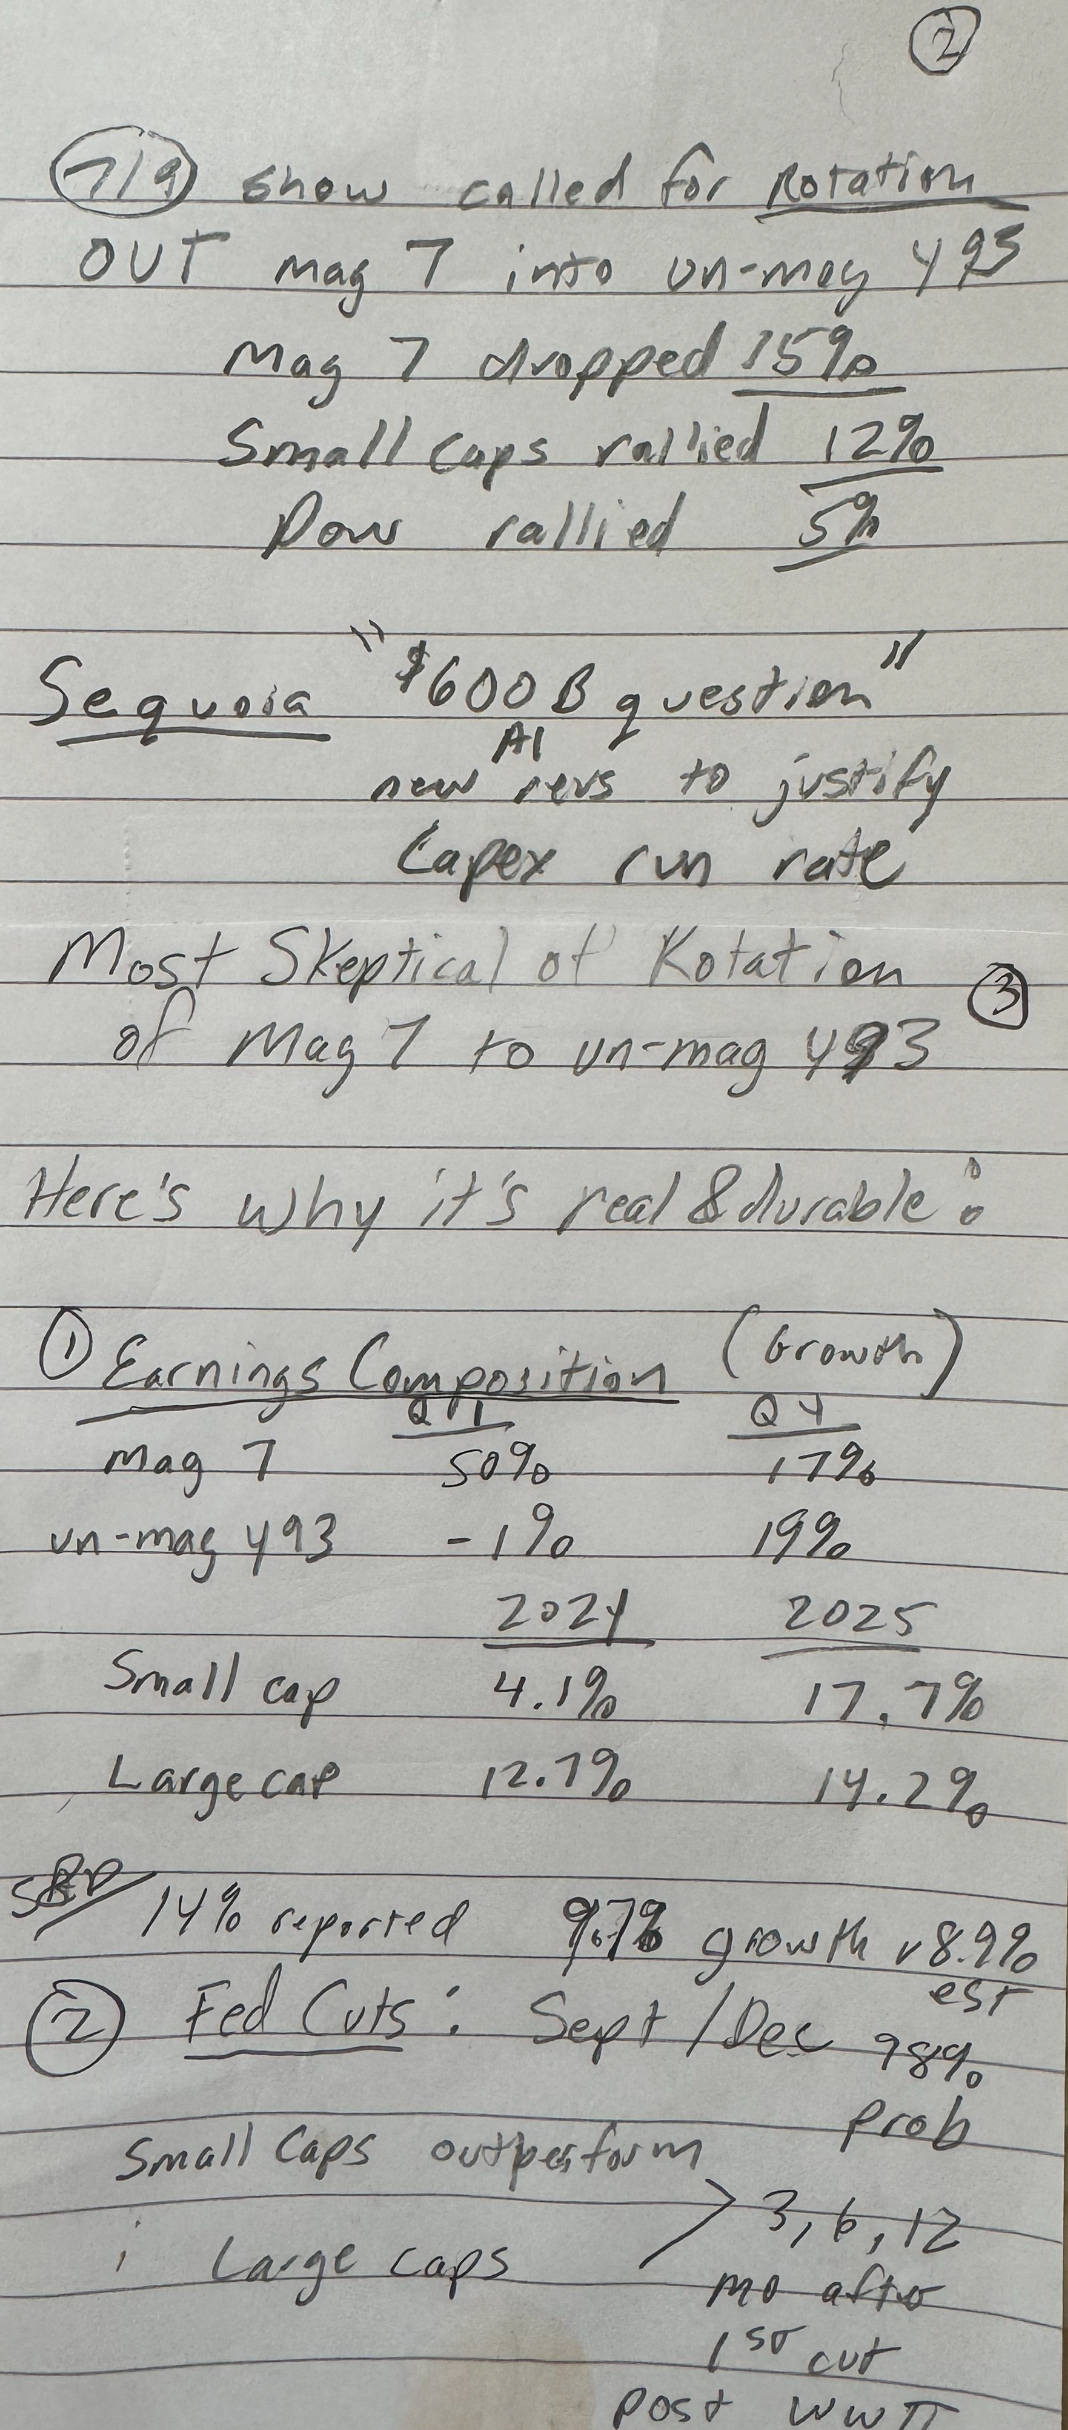 2
7/9 show called for Rotation
OUT mag 7 into un-mag 493
Mag 7 dropped 15%
Small caps rallied 12%
Dow rallied 5%
Sequoia "$600 B question"
AI
new revs to justify
Capex run rate
Most Skeptical of Rotation
3
of Mag 7 to un-mag 493
Here's why it's real & durable:
1 Earnings Composition (Growth)
Q1 Q4
Mag 7 50% 17%
un-mag 493 -1% 19%
2024 2025
Small cap 4.1% 17.7%
Large cap 12.7% 14.2%
14% reported 9.7% growth v 8.9%
est
2 Fed Cuts: Sept/Dec 98%
prob
Small Caps outperform
> 3, 6, 12
Large caps
mo after
1st cut
post WWII